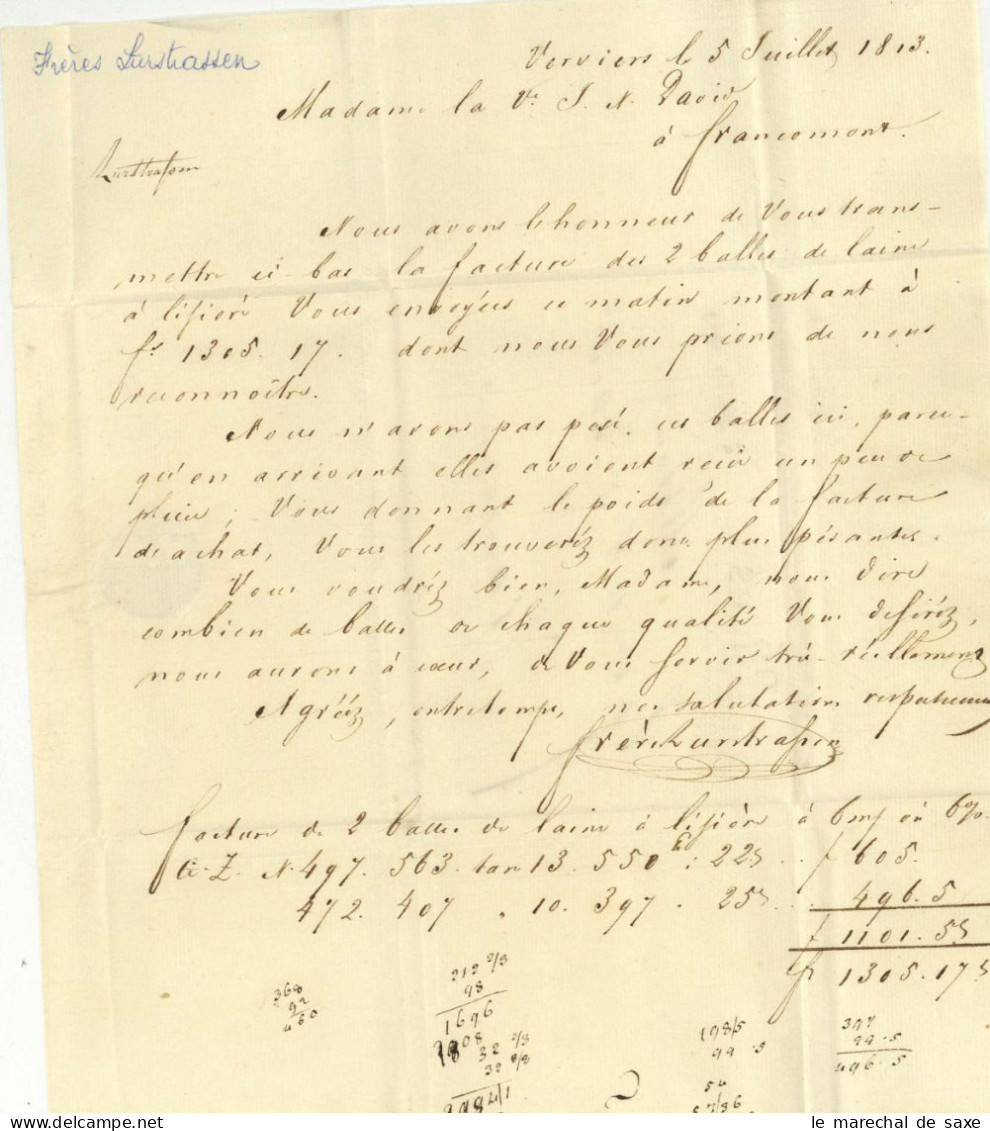 Frères Lurstrassen
Verviers le 5 Juillet 1813.
Madame la Ve. J. N. David
à francomont.
Lurstrassen
Nous avons l'honneur de Vous trans-
mettre ci-bas la facture des 2 balles de laine
à lisière Vous envoyées ce matin montant à
fs 1305.17. dont nous Vous prions de nous
reconnoître.
Nous n'avons pas pesé ces balles ici, parce-
qu'en arrivant elles avoient reçu un peu de
pluie; Vous donnant le poids de la facture
de achat, Vous les trouveréz donc plus pésantes.
Vous voudréz bien, Madame, nous dire
combien de balles de chaque qualité Vous desiréz,
nous aurons à cœur, de Vous servir très-réellement
Agrééz, entretemps, nos salutations respectueuses
frères Lurstrassen
facture de 2 balles de laine à lisière à 6 m/ ou 6%.
C.Z. N. 497. 563. tar 13. 550 : 22s .. f 605.
472. 407 " 10. 397 . 25s ... 496.5
f 1101.5s
fs 1305.17s
368
92
460
212 2/3
98
1696
1908
32 2/3
32 2/3
198/5
99.5
397
99.5
496.5
54
le marechal de saxe